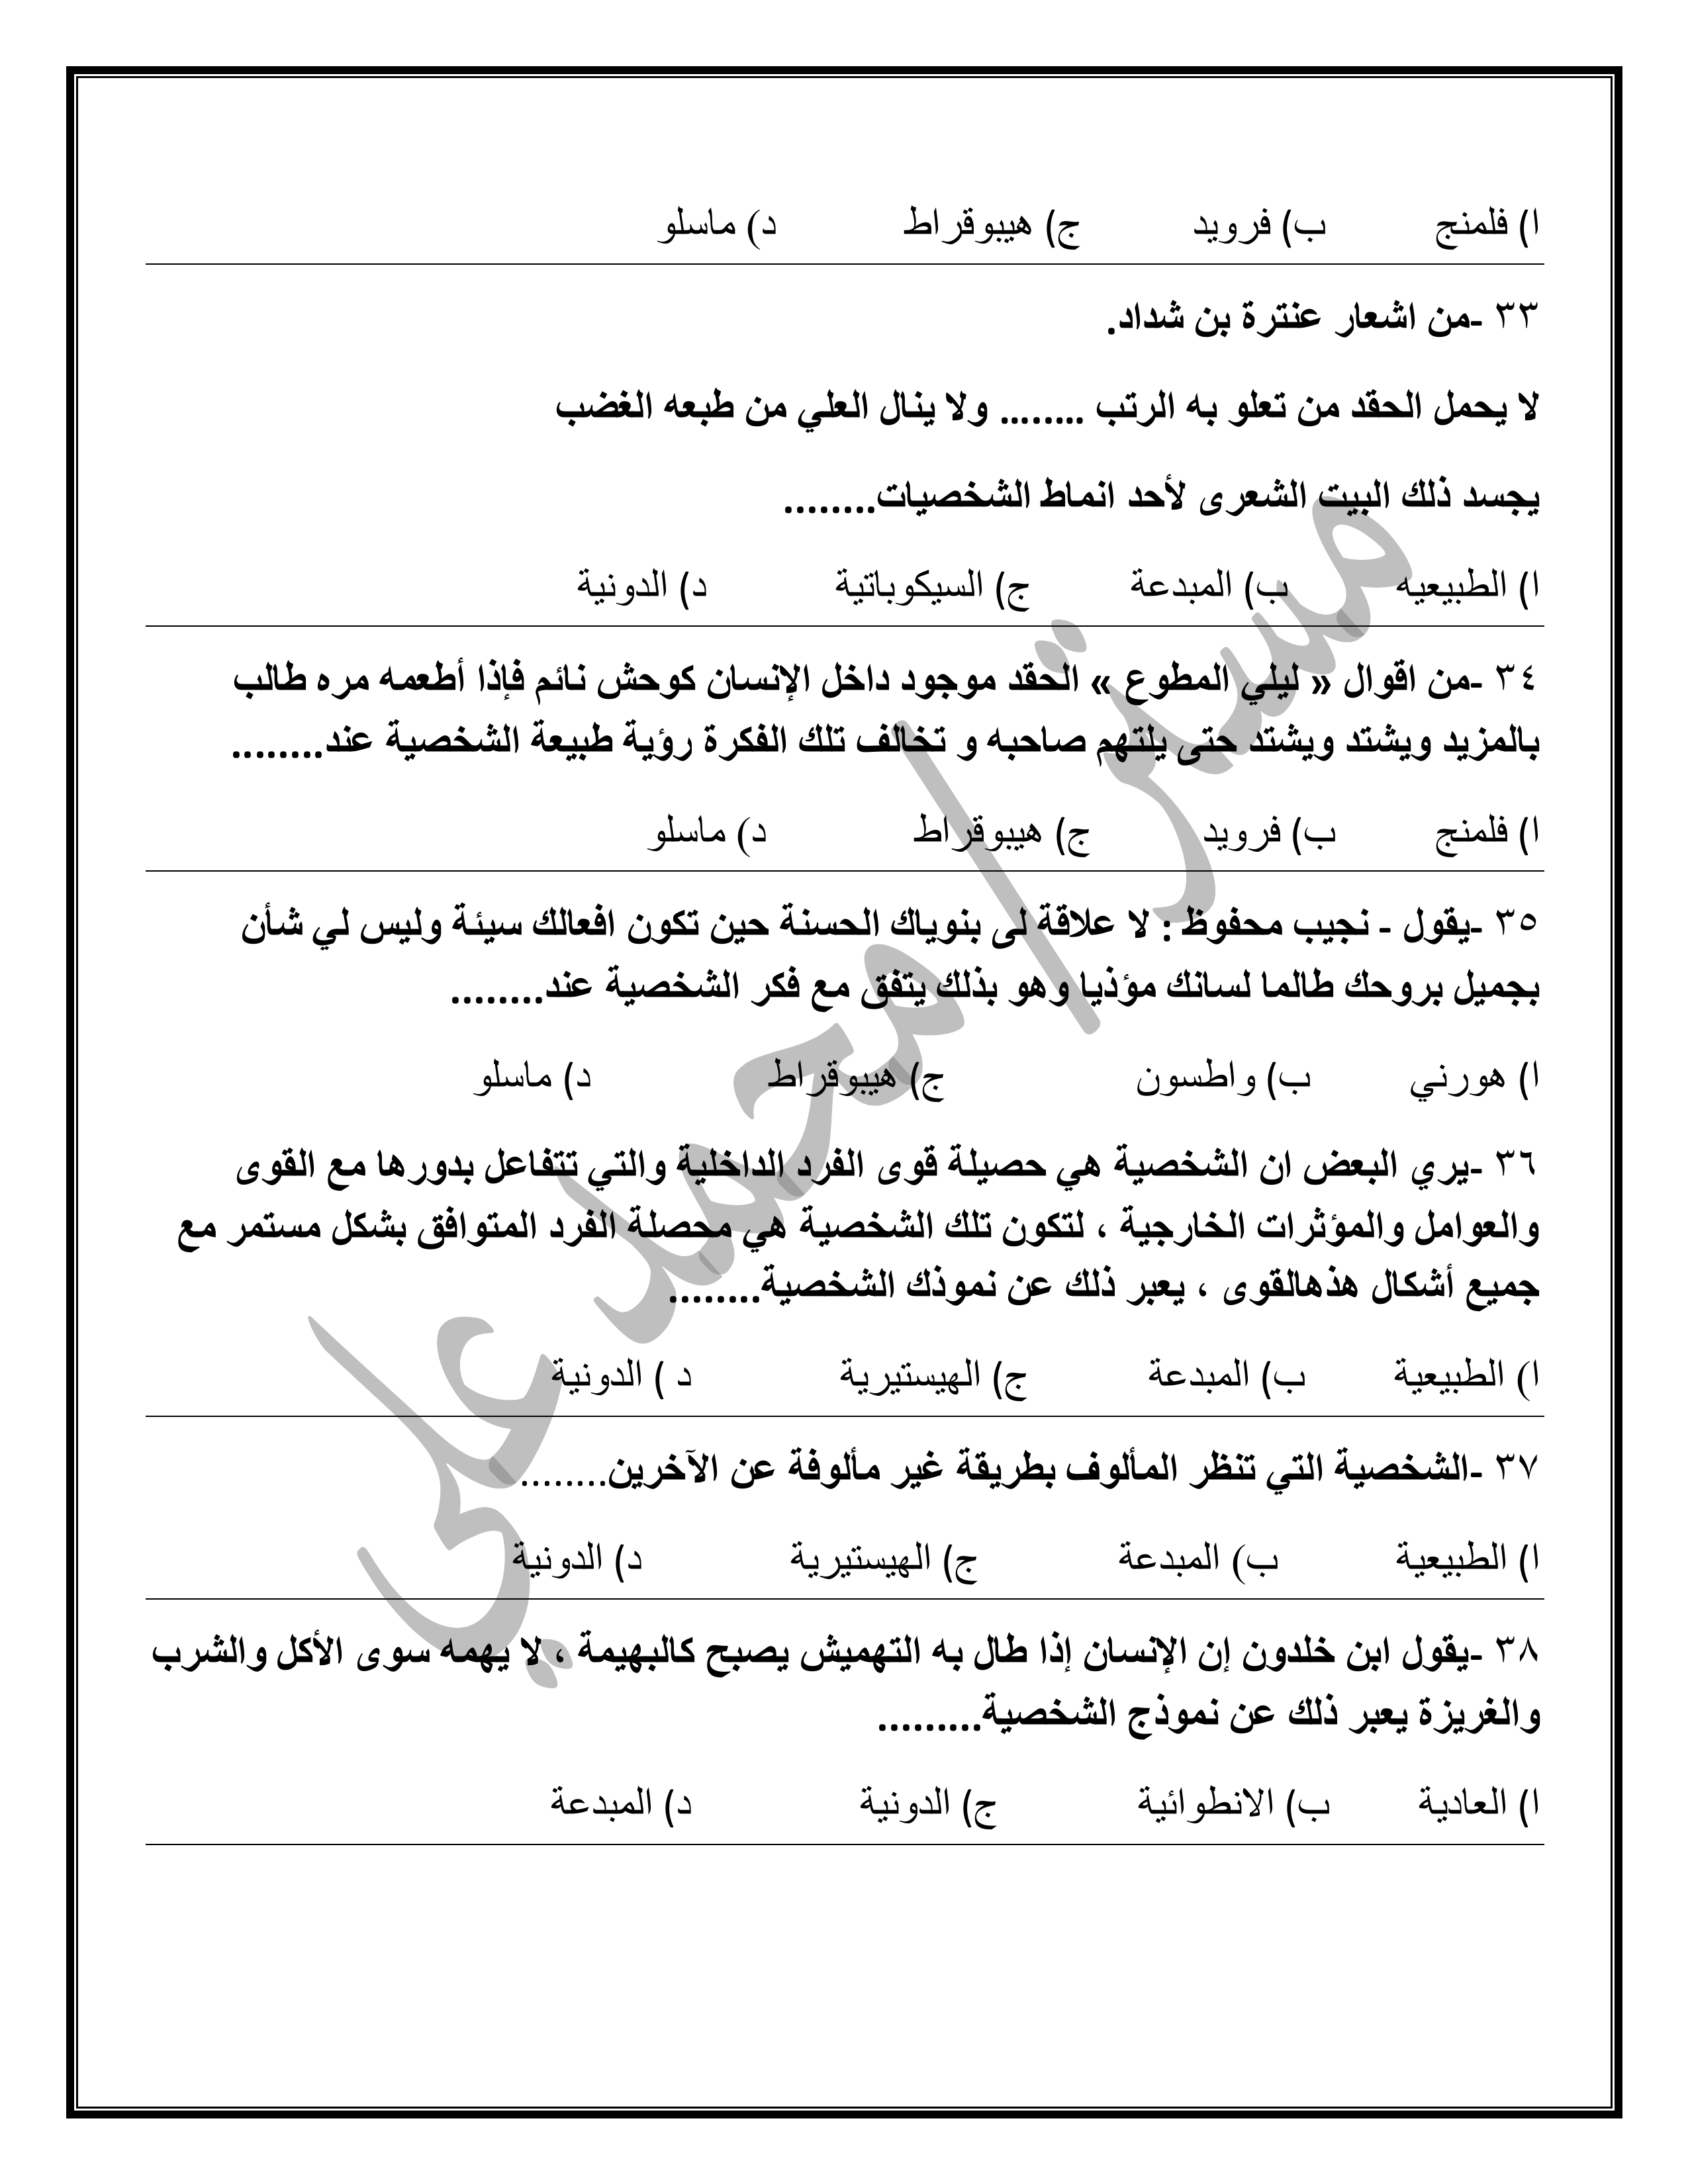 ا) فلمنج ب) فرويد ج) هيبوقراط د) ماسلو
٣٣ -من اشعار عنترة بن شداد.
لا يحمل الحقد من تعلو به الرتب ........ ولا ينال العلي من طبعه الغضب
يجسد ذلك البيت الشعرى لأحد انماط الشخصيات........
ا) الطبيعيه ب) المبدعة ج) السيكوباتية د) الدونية
٣٤ -من اقوال « ليلي المطوع » الحقد موجود داخل الإنسان كوحش نائم فإذا أطعمه مره طالب
بالمزيد ويشتد ويشتد حتى يلتهم صاحبه و تخالف تلك الفكرة رؤية طبيعة الشخصية عند........
ا) فلمنج ب) فرويد ج) هيبوقراط د) ماسلو
٣٥ -يقول - نجيب محفوظ : لا علاقة لى بنوياك الحسنة حين تكون افعالك سيئة وليس لي شأن
بجميل بروحك طالما لسانك مؤذيا وهو بذلك يتفق مع فكر الشخصية عند........
ا) هورني ب) واطسون ج) هيبوقراط د) ماسلو
٣٦ -يري البعض ان الشخصية هي حصيلة قوى الفرد الداخلية والتي تتفاعل بدورها مع القوى
والعوامل والمؤثرات الخارجية ، لتكون تلك الشخصية هي محصلة الفرد المتوافق بشكل مستمر مع
جميع أشكال هذهالقوى ، يعبر ذلك عن نموذك الشخصية........
ا) الطبيعية ب) المبدعة ج) الهيستيرية د ) الدونية
٣٧ -الشخصية التي تنظر المألوف بطريقة غير مألوفة عن الآخرين........
ا) الطبيعية ب) المبدعة ج) الهيستيرية د) الدونية
٣٨ -يقول ابن خلدون إن الإنسان إذا طال به التهميش يصبح كالبهيمة ، لا يهمه سوى الأكل والشرب
والغريزة يعبر ذلك عن نموذج الشخصية.........
ا) العادية ب) الانطوائية ج) الدونية د) المبدعة
مستر/محمد علي